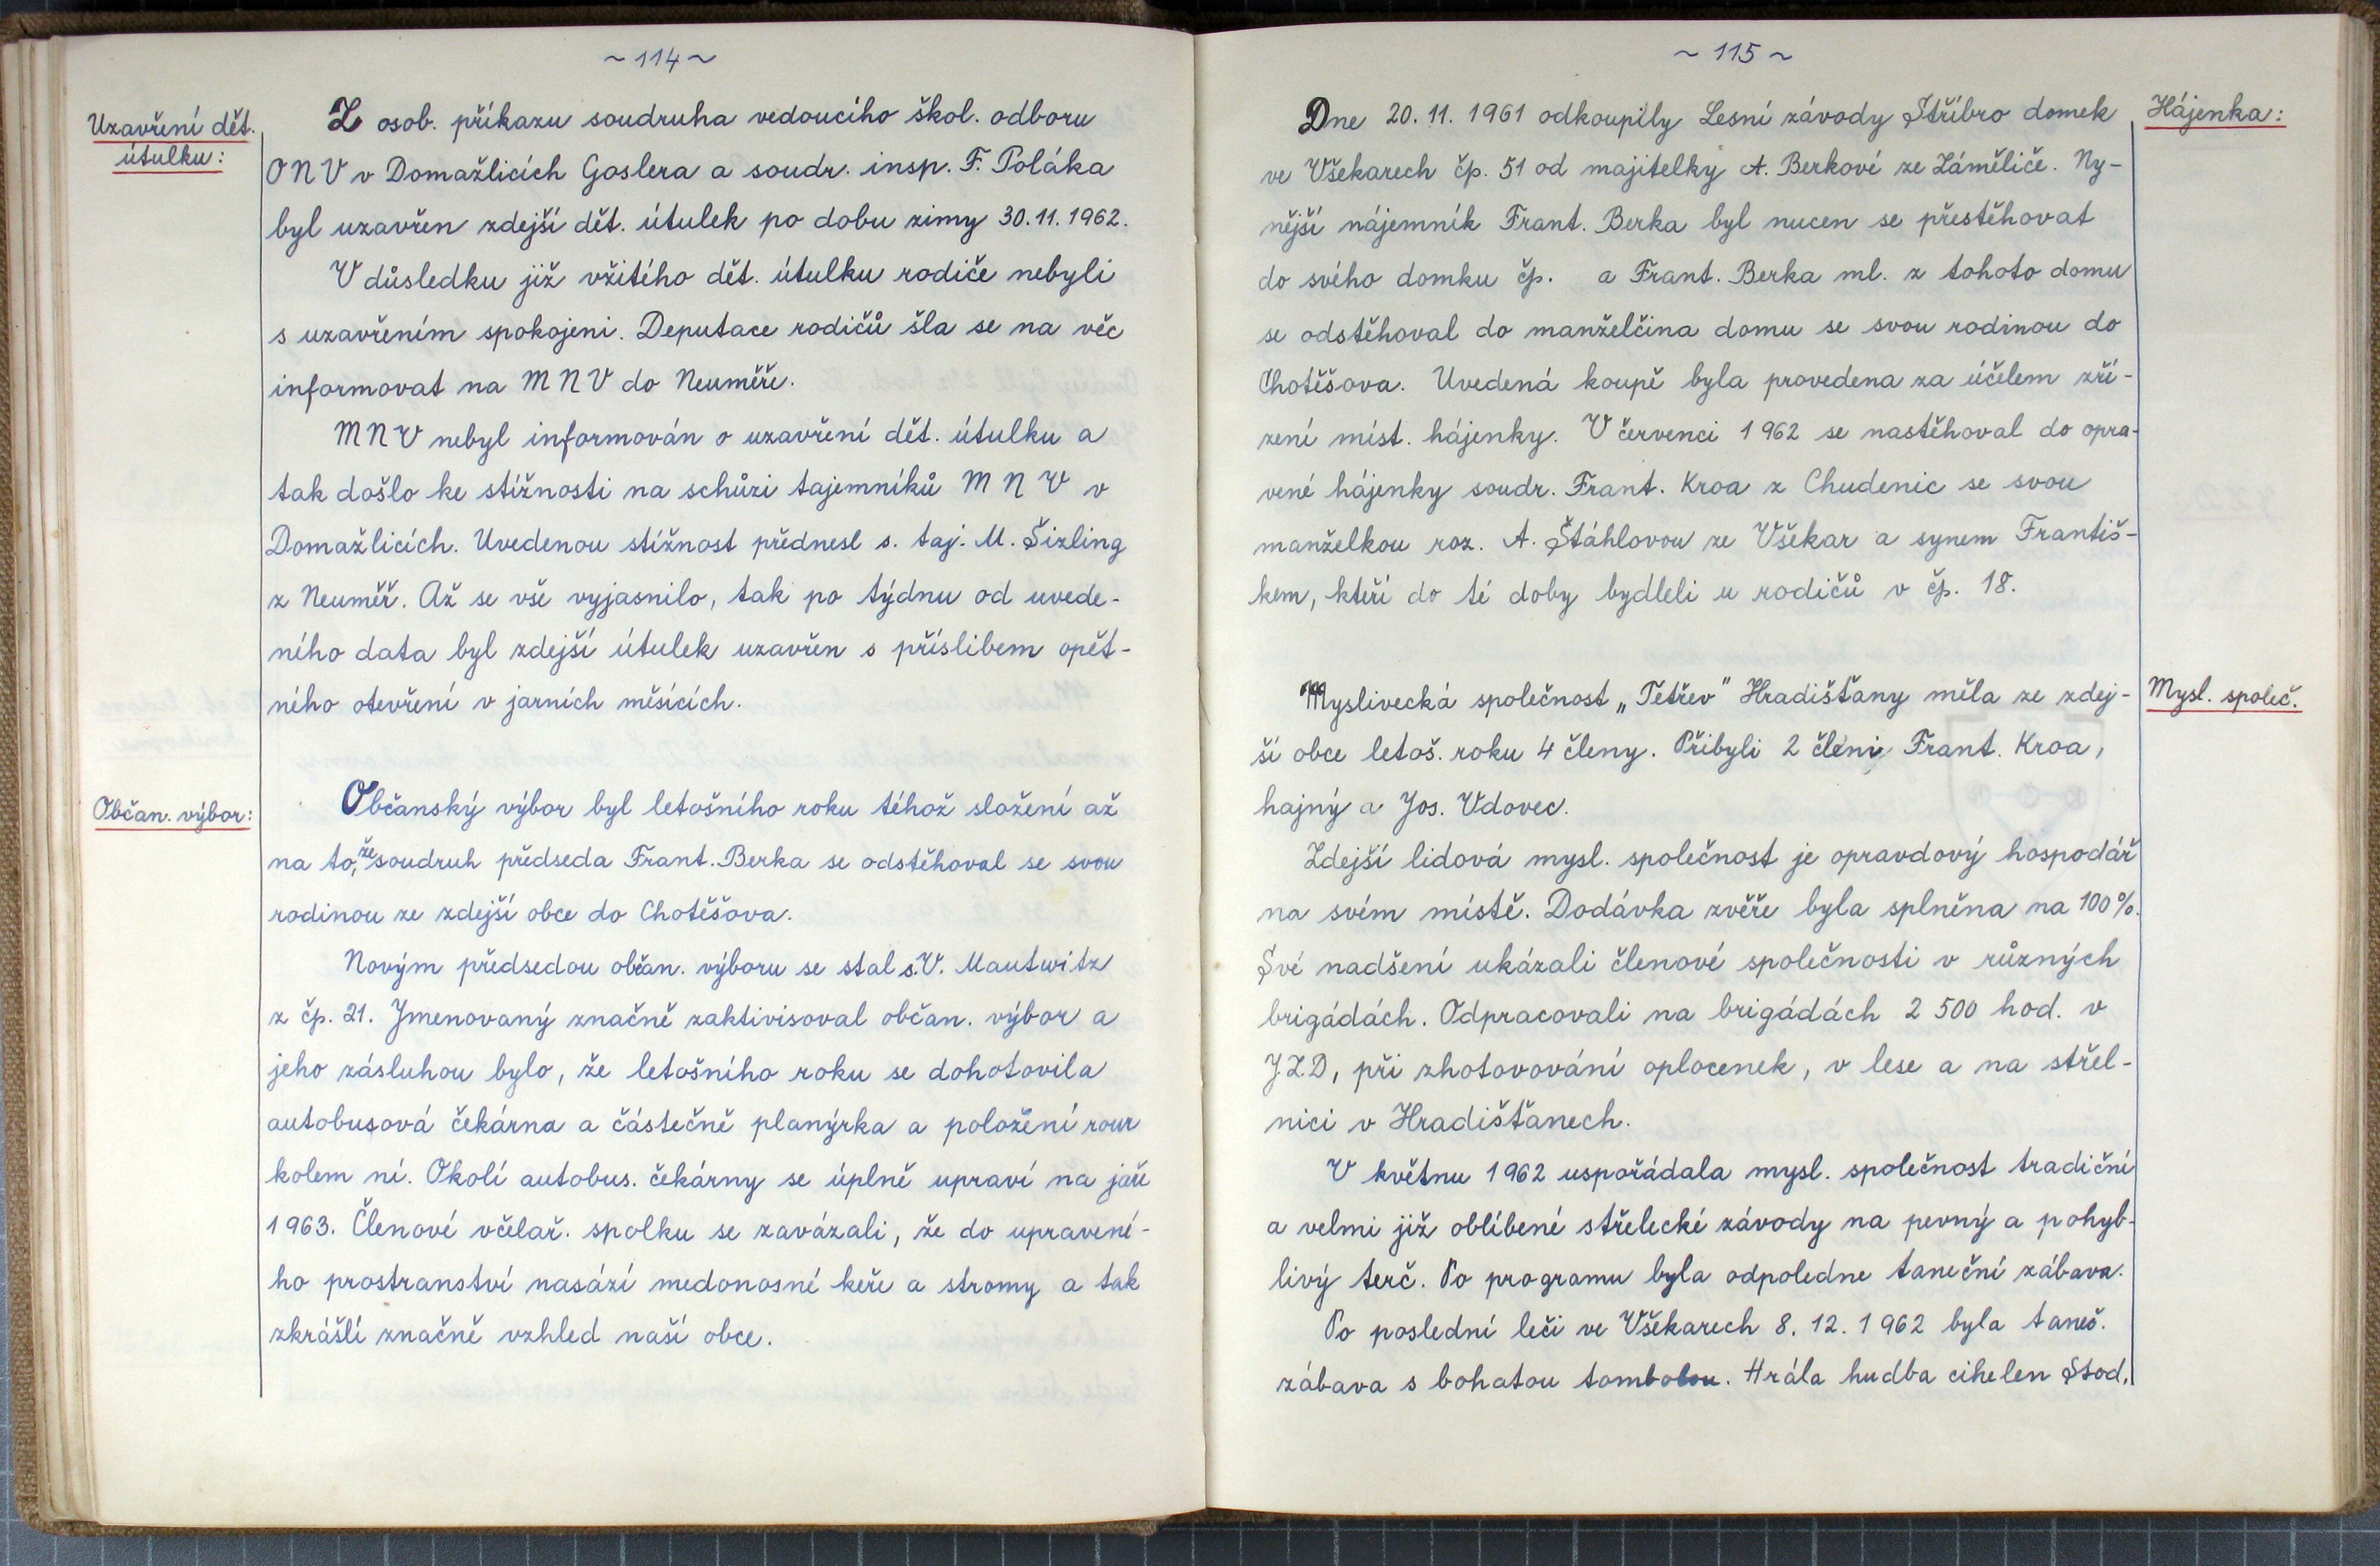 ~ 114 ~
Uzavření dět.
útulku:
Z osob. příkazu soudruha vedoucího škol. odboru
ONV v Domažlicích Goslera a soudr. insp. F. Poláka
byl uzavřen zdejší dět. útulek po dobu zimy 30.11.1962.
V důsledku již vžitého dět. útulku rodiče nebyli
s uzavřením spokojeni. Deputace rodičů šla se na věc
informovat na MNV do Neuměře.
MNV nebyl informován o uzavření dět. útulku a
tak došlo ke stížnosti na schůzi tajemníků MNV v
Domažlicích. Uvedenou stížnost přednesl s. taj. M. Šizling
z Neuměř. Až se vše vyjasnilo, tak po týdnu od uvede-
ného data byl zdejší útulek uzavřen s příslibem opět-
ného otevření v jarních měsících.
Občan. výbor:
Občanský výbor byl letošního roku téhož složení až
na to, že soudruh předseda Frant. Berka se odstěhoval se svou
rodinou ze zdejší obce do Chotěšova.
Novým předsedou občan. výboru se stal s. V. Mautwitz
z čp. 21. Jmenovaný značně zaktivisoval občan. výbor a
jeho zásluhou bylo, že letošního roku se dohotovila
autobusová čekárna a částečně planýrka a položení rour
kolem ní. Okolí autobus. čekárny se úplně upraví na jaře
1963. Členové včelař. spolku se zavázali, že do upravené-
ho prostranství nasází medonosné keře a stromy a tak
zkrášlí značně vzhled naší obce.
~ 115 ~
Hájenka:
Dne 20. 11. 1961 odkoupily Lesní závody Stříbro domek
ve Všekarech čp. 51 od majitelky A. Berkové ze Záměliče. Ny-
nější nájemník Frant. Berka byl nucen se přestěhovat
do svého domku čp. a Frant. Berka ml. z tohoto domu
se odstěhoval do manželčina domu se svou rodinou do
Chotěšova. Uvedená koupě byla provedena za účelem zří-
zení míst. hájenky. V červenci 1962 se nastěhoval do opra-
vené hájenky soudr. Frant. Kroa z Chudenic se svou
manželkou roz. A. Štáhlovou ze Všekar a synem Františ-
kem, kteří do té doby bydleli u rodičů v čp. 18.
Mysl. společ.
Myslivecká společnost „Tetřev" Hradišťany měla ze zdej-
ší obce letoš. roku 4 členy. Přibyli 2 členi Frant. Kroa,
hajný a Jos. Vdovec.
Zdejší lidová mysl. společnost je opravdový hospodář
na svém místě. Dodávka zvěře byla splněna na 100%.
Své nadšení ukázali členové společnosti v různých
brigádách. Odpracovali na brigádách 2 500 hod. v
JZD, při zhotovování oplocenek, v lese a na střel-
nici v Hradišťanech.
V květnu 1962 uspořádala mysl. společnost tradiční
a velmi již oblíbené střelecké závody na pevný a pohyb-
livý terč. Po programu byla odpoledne taneční zábava.
Po poslední leči ve Všekarech 8. 12. 1962 byla taneč.
zábava s bohatou tombolou. Hrála hudba cihelen Stod,